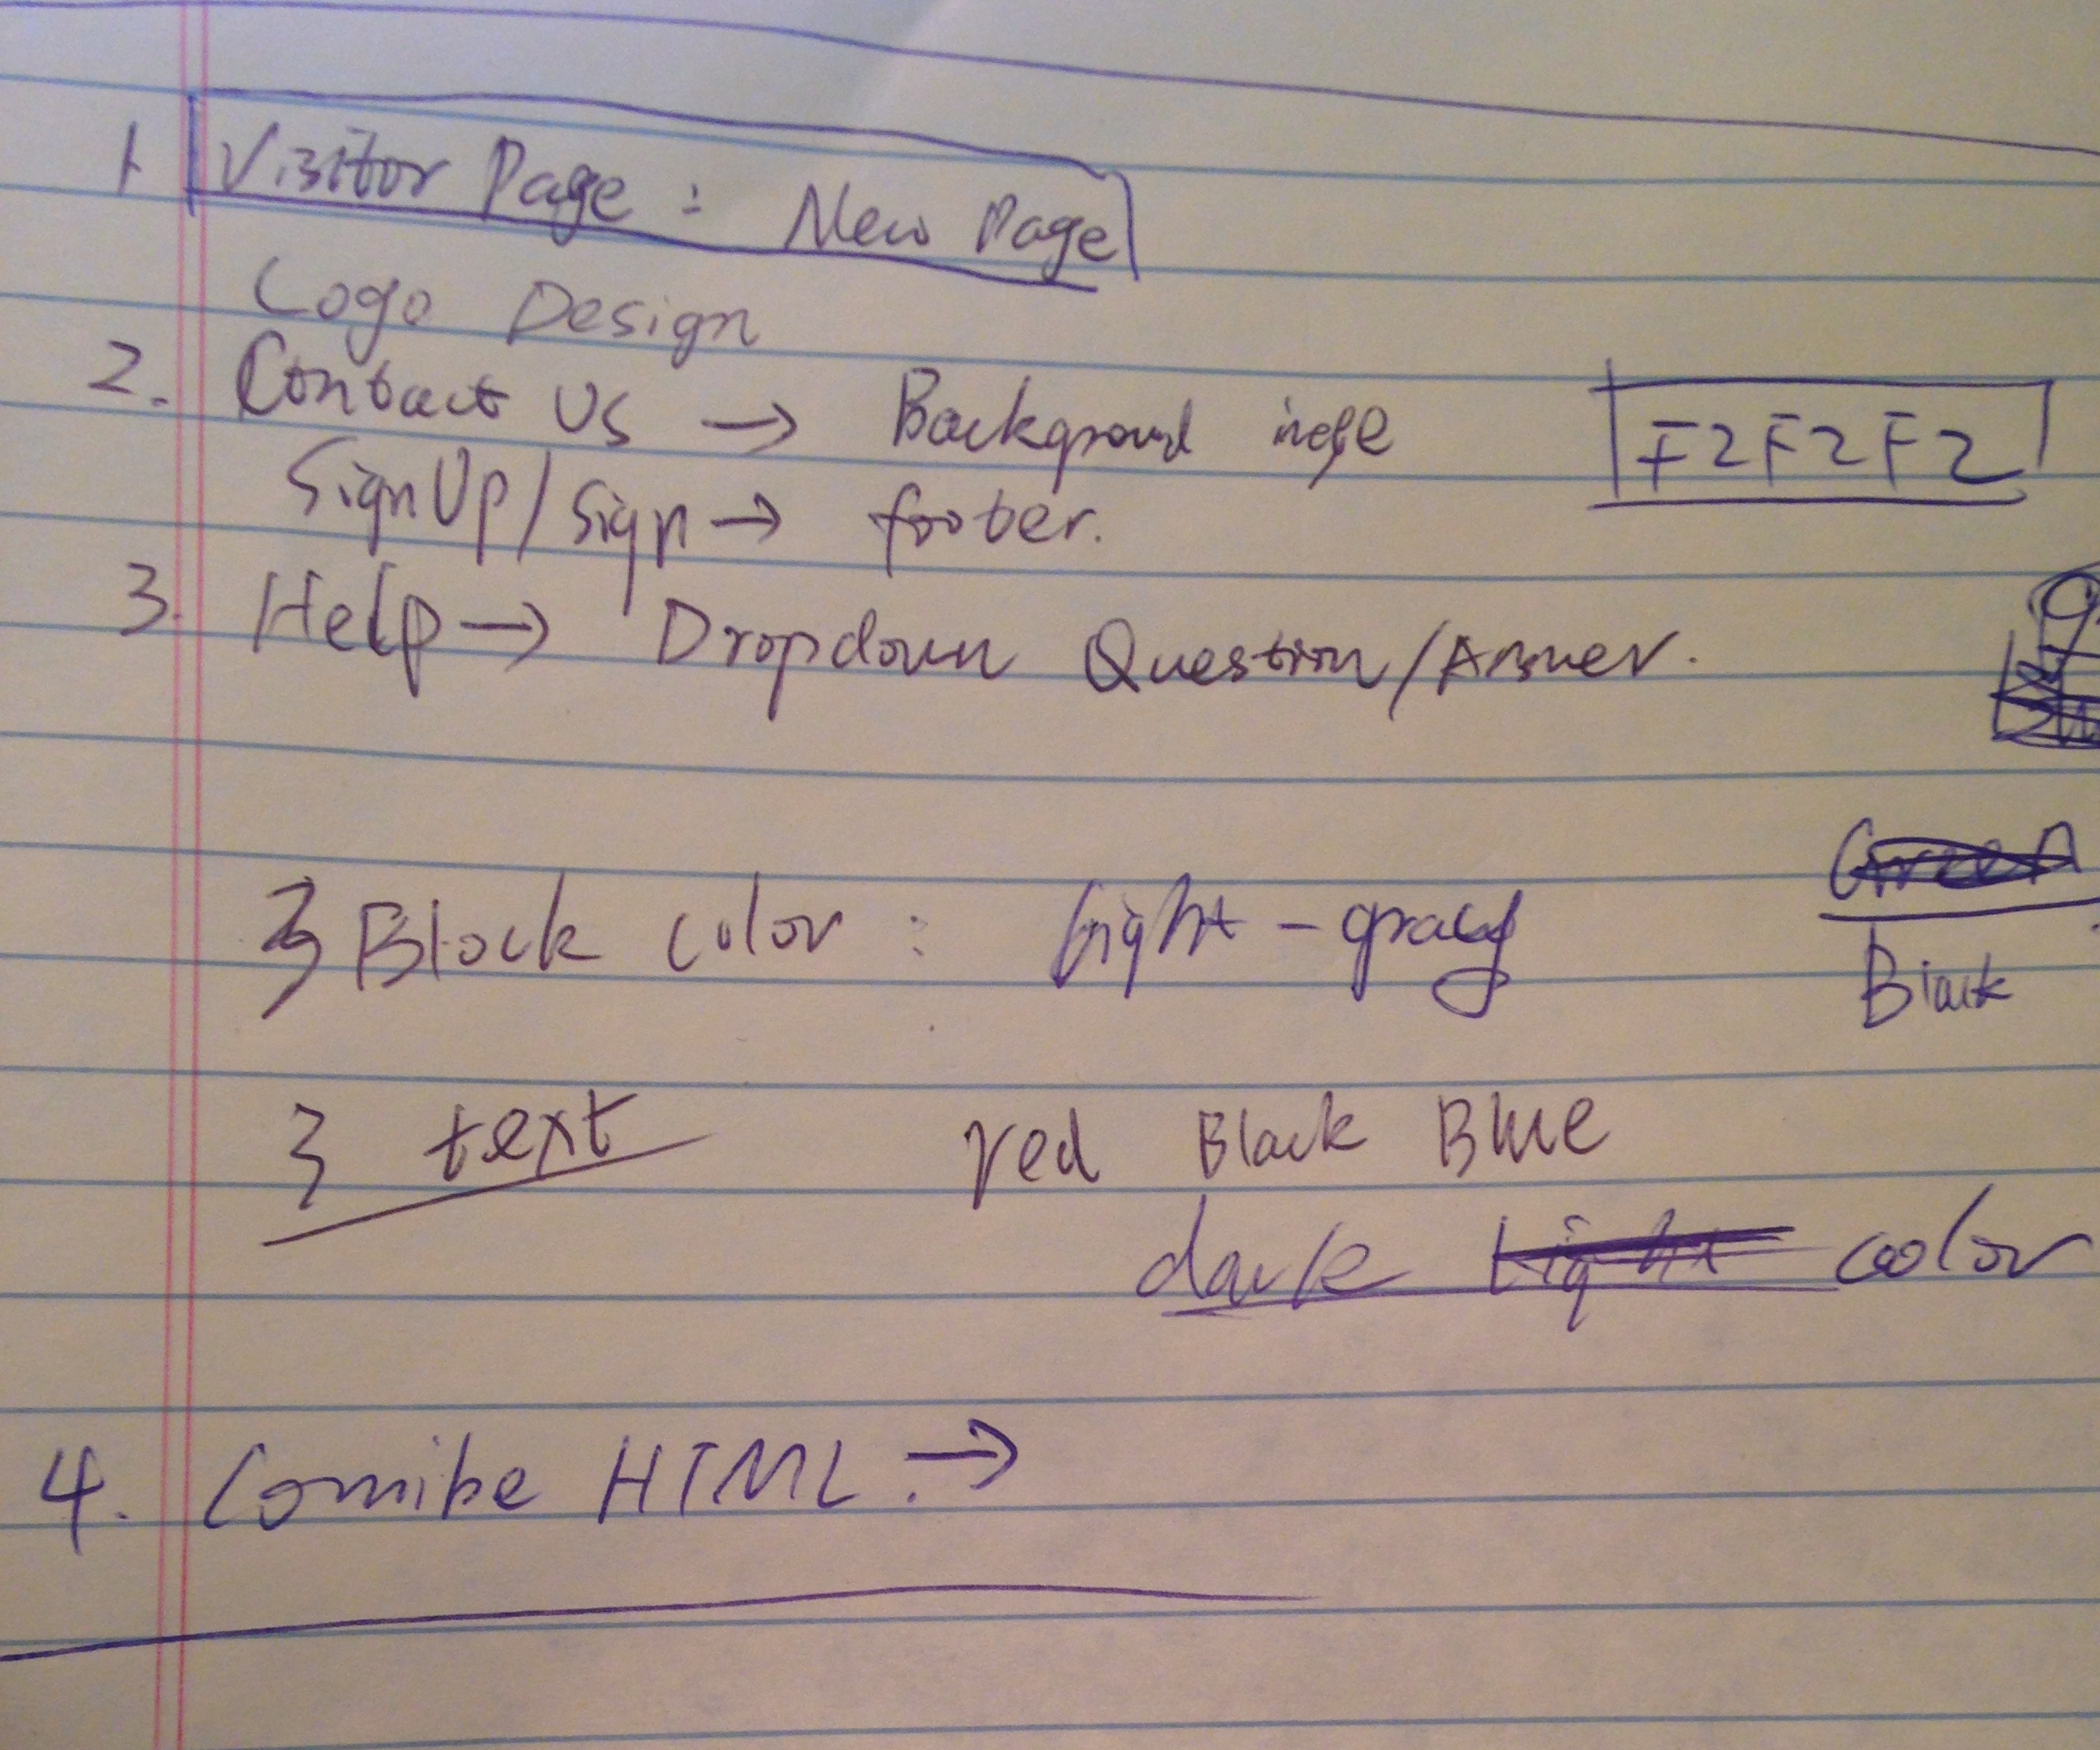 1. Visitor Page : New Page
Logo Design
2. Contact Us → Background F2F2F2
SignUp/Sign → footer.
3. Help → Dropdown Question/Answer.
3 Block color : light-gray Green
Black
3 text red Black Blue
dark Light color
4. Comibe HTML. →